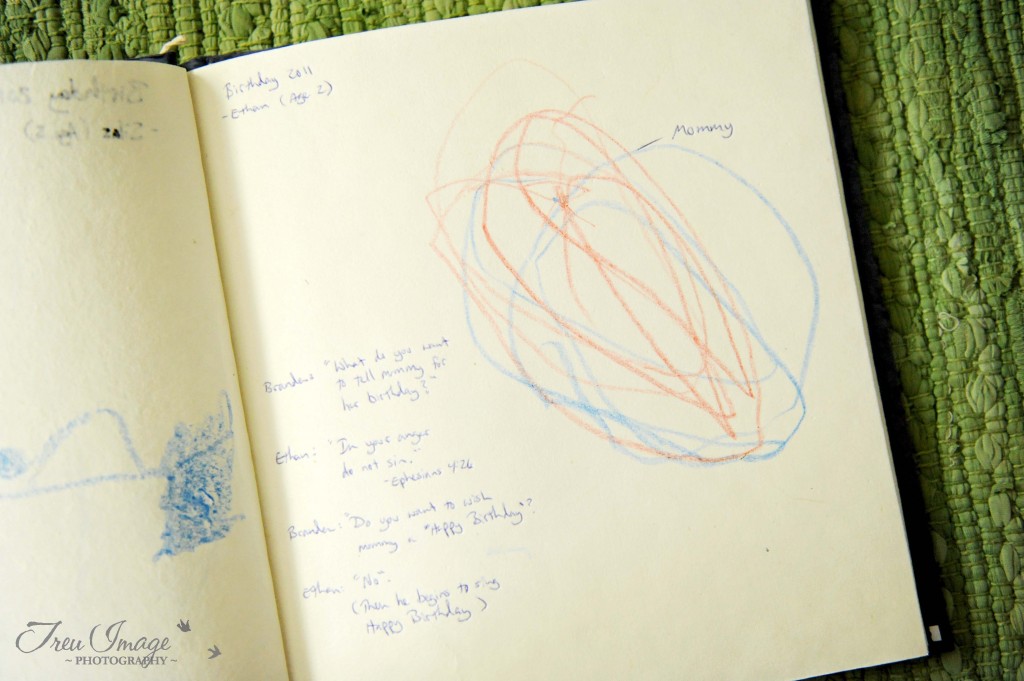 Birthday 2011
- Ethan (Age 2)
Mommy
Branden: "What do you want
to tell mommy for
her birthday?"
Ethan: "In your anger
do not sin."
- Ephesians 4:26
Branden: "Do you want to wish
mommy a "Happy Birthday"?
Ethan: "No".
(Then he begins to sing
Happy Birthday)
Treu Image
~ PHOTOGRAPHY ~